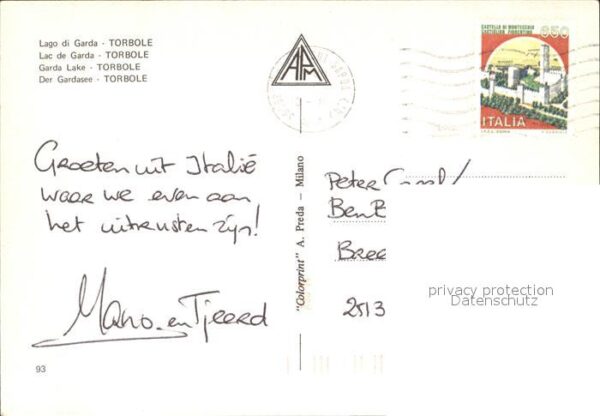 Lago di Garda - TORBOLE
Lac de Garda - TORBOLE
Garda Lake - TORBOLE
Der Gardasee - TORBOLE
APM
CASTELLO DI MONTECCHIO
CASTIGLION FIORENTINO
850
ITALIA
I.P.Z.S. ROMA
Groeten uit Italië
waar we even aan
het uitrusten zijn!
en Tjeerd
"Colorprint" A. Preda - Milano
Peter
Ben
Bree
2513
privacy protection
Datenschutz
93